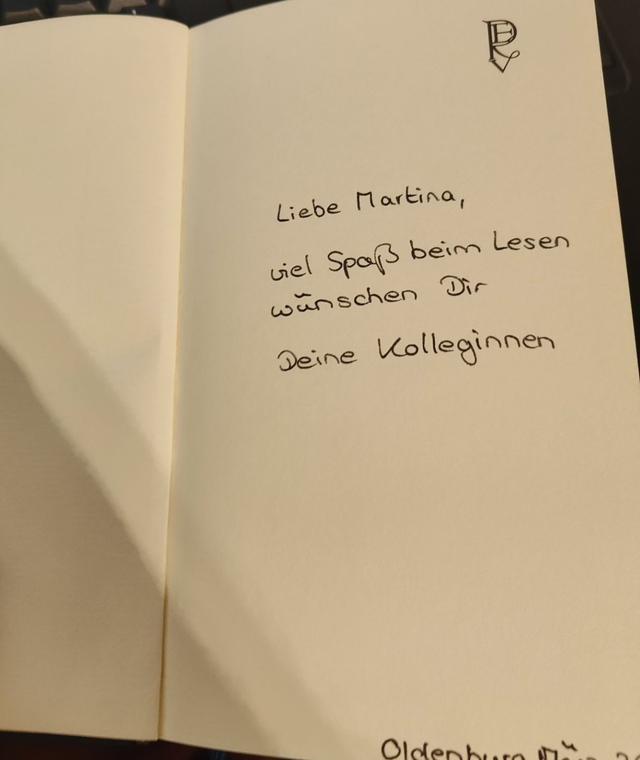 Liebe Martina,
viel Spaß beim Lesen
wünschen Dir
Deine Kolleginnen
Oldenburg